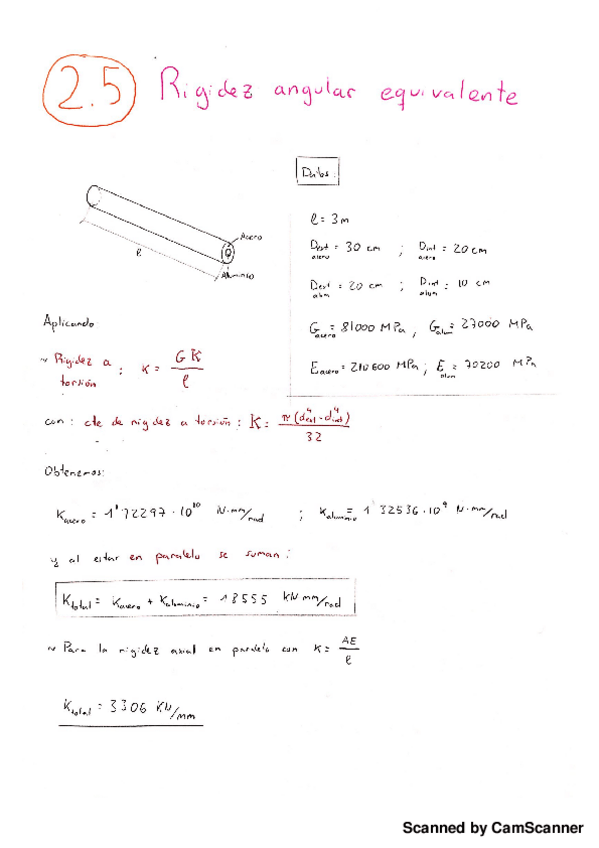 2.5 Rigidez angular equivalente
Datos:
l = 3 m
Dext acero = 30 cm ; Dint acero = 20 cm
Dext alum = 20 cm ; Dint alum = 10 cm
Gacero = 81000 MPa , Galum = 27000 MPa
Eacero = 210600 MPa ; Ealum = 70200 MPa
Acero
l
Aluminio
Aplicando:
~ Rigidez a torsión : K = GK/l
con : cte de rigidez a torsión : K = π(d⁴ext - d⁴int)/32
Obtenemos:
Kacero = 1'72297 · 10¹⁰ N·mm/rad ; Kaluminio = 1'32536 · 10⁹ N·mm/rad
y al estar en paralelo se suman :
Ktotal = Kacero + Kaluminio = 18555 KN mm/rad
~ Para la rigidez axial en paralelo con K = AE/l
Ktotal = 3306 KN/mm
Scanned by CamScanner